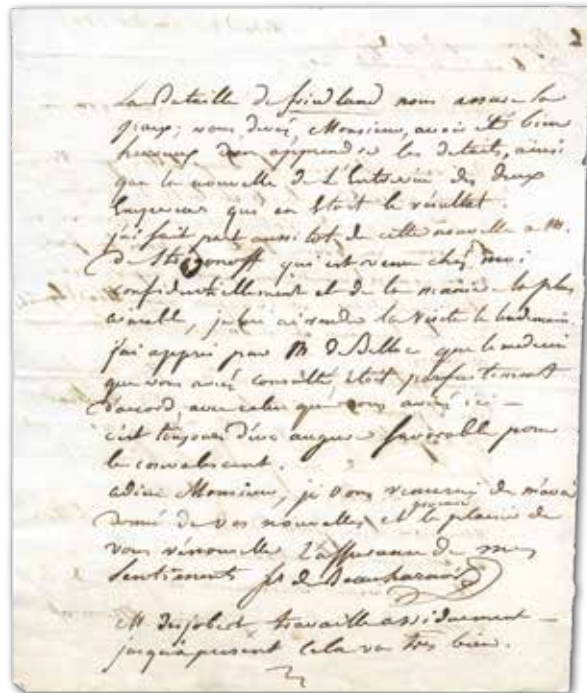 La Bataille de friedland nous assure la
paix; vous devez, Monsieur, avoir été bien
heureux d'en apprendre les détails, ainsi
que la nouvelle de l'Entrevue des deux
Empereurs qui en était le résultat.
j'ai fait part aussitot de cette nouvelle a M.
de Strogonoff qui est venu chez moi
confidentiellement et de la maniere la plus
aimable, je lui ai rendu la visite le lendemain.
j'ai appris par M de Belloc que le medecin
que vous aviez consulté étoit parfaitement
d'accord, avec celui que vous aviez ici —
c'est toujours d'un augure favorable pour
le convalescent.
adieu Monsieur, je vous remercie de m'avoir
donné de vos nouvelles et procuré le plaisir de
vous rénouveller l'assurance de mes
Sentiments fs de Beauharnois
M. desjobert travaille assiduement —
jusqu'à present cela va très bien.